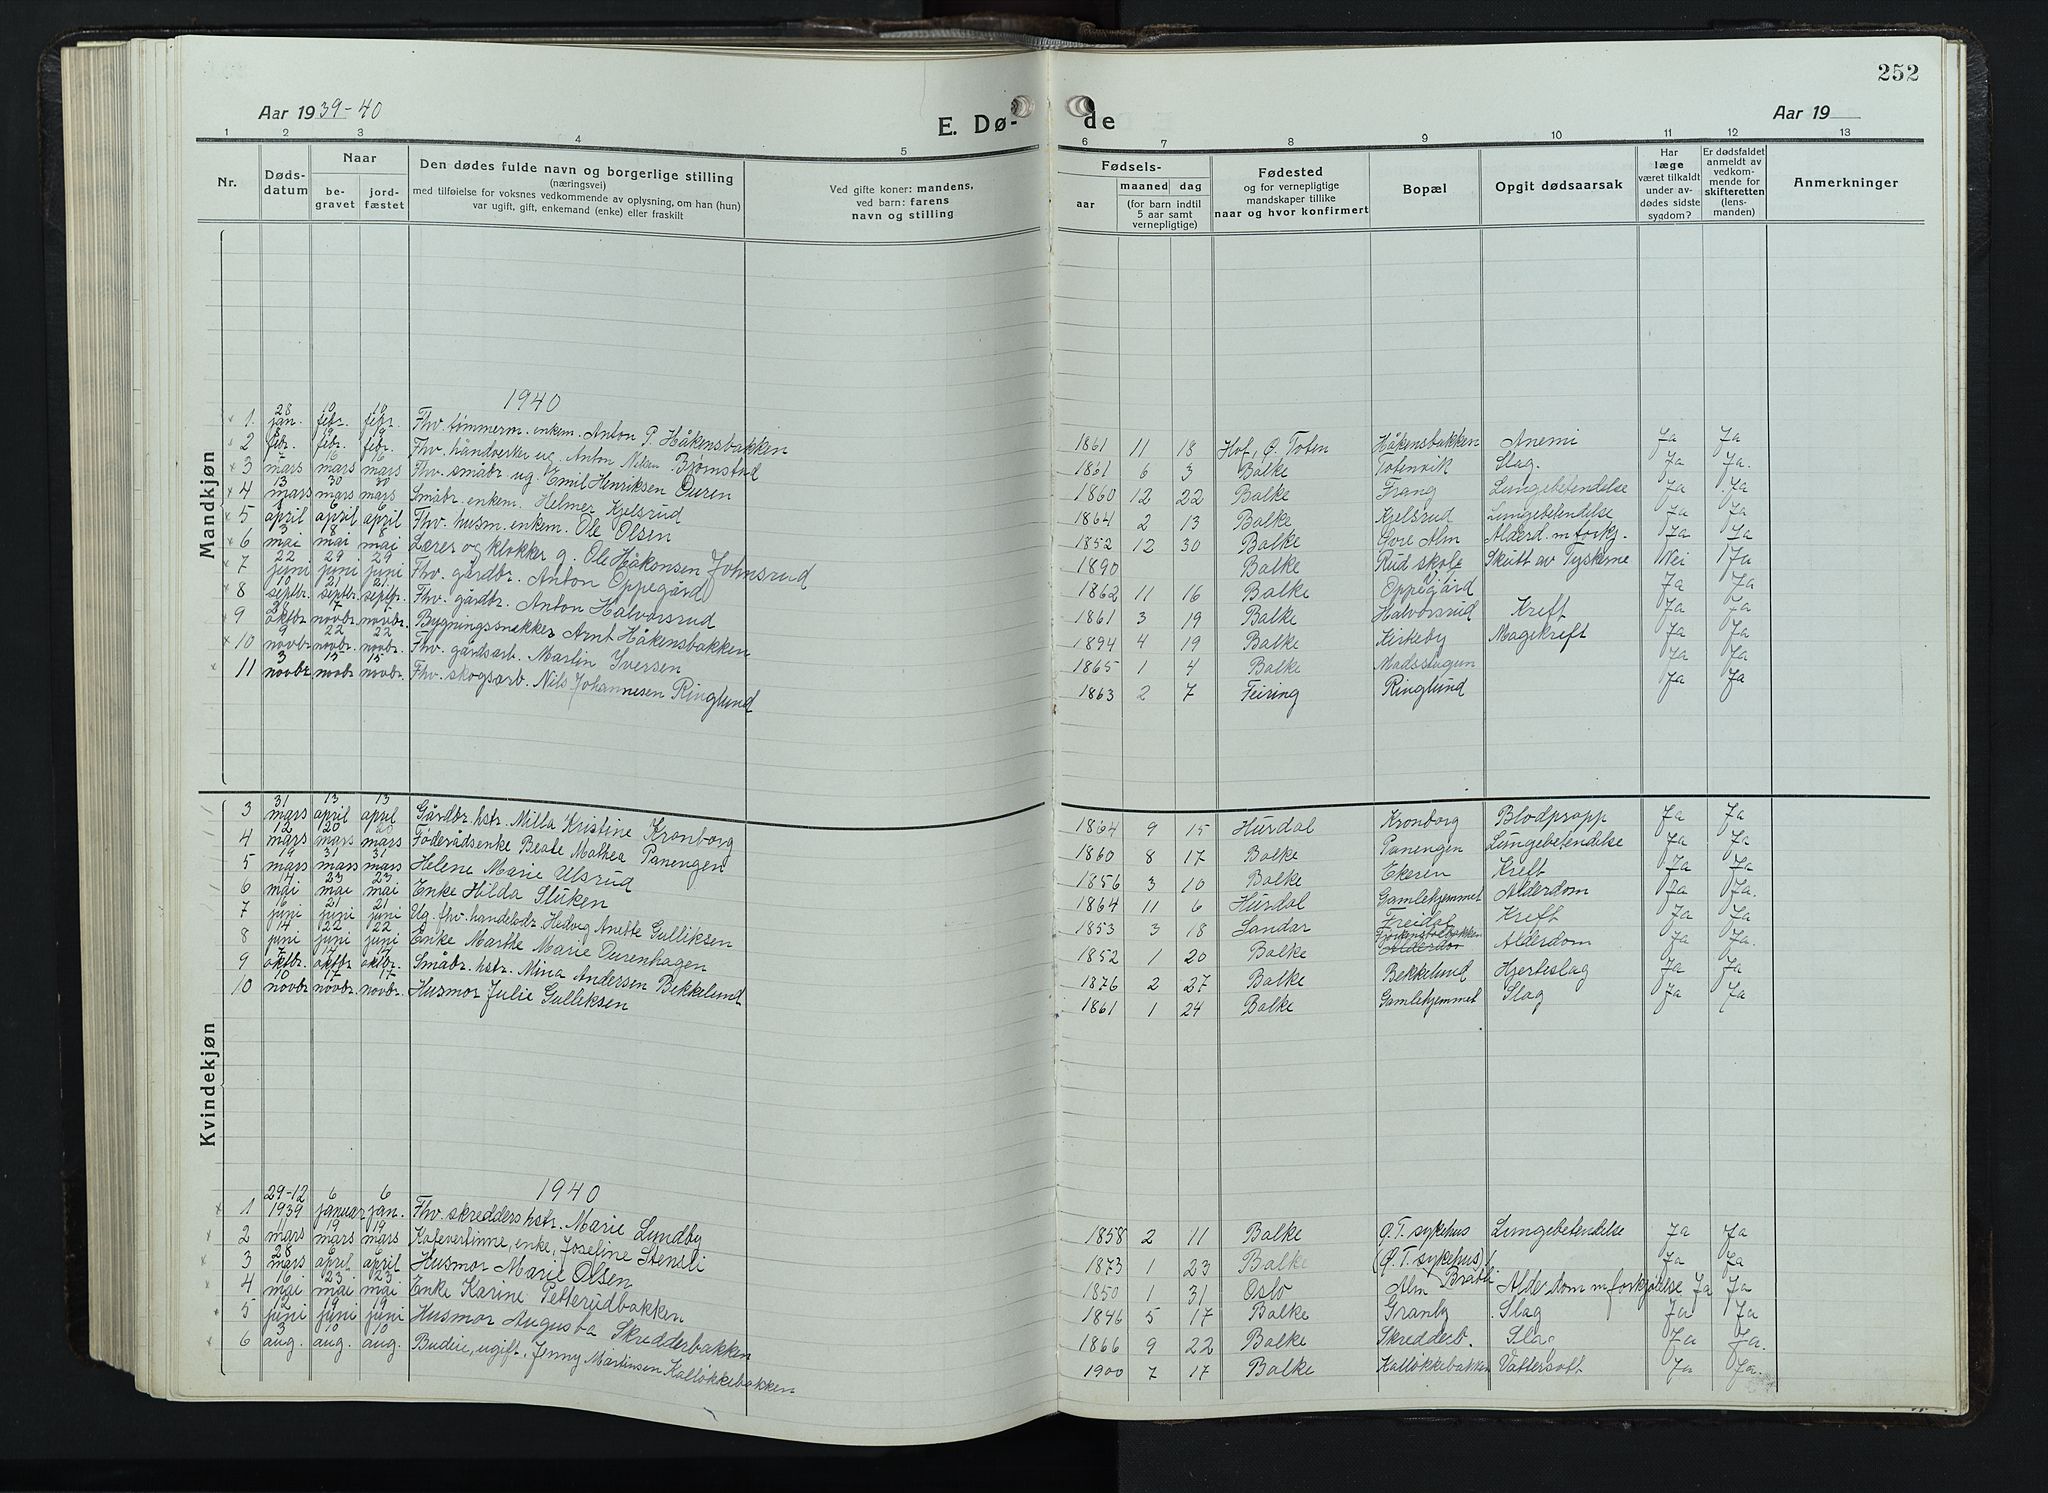 252
Aar 1939-40
E. Dø-de
Aar 19
1 2 3 4 5 6 7 8 9 10 11 12 13
Nr.
Dødsdatum
Naar
begravet
jordfæstet
Den dødes fulde navn og borgerlige stilling
(næringsvei)
med tilføielse for voksnes vedkommende av oplysning, om han (hun)
var ugift, gift, enkemand (enke) eller fraskilt
Ved gifte koner: mandens,
ved barn: farens
navn og stilling
Fødsels-
aar
maaned dag
(for barn indtil
5 aar samt
vernepligtige)
Fødested
og for vernepligtige
mandskaper tillike
naar og hvor konfirmert
Bopæl
Opgit dødsaarsak
Har
læge
været tilkaldt
under av-
dødes sidste
sygdom?
Er dødsfaldet
anmeldt av
vedkom-
mende for
skifteretten
(lens-
manden)
Anmerkninger
Mandkjøn
1940
1. 28 jan. 10 febr. 10 febr. Fhv. tømmerm. enkem. Anton P. Håkensbakken 1861 11 18 Hof, Ø. Toten Håkensbakken Anemi Ja Ja
2 8 febr. 19 febr. 19 febr. Fhv. håndverker ug. Anton Nilsen Bjørnstad 1861 6 3 Balke Totenvik Slag. Ja Ja.
3 7 mars 16 mars 16 mars Fhv. småbr. ug. Emil Henriksen Duren 1860 12 22 Balke Frang Lungebetendelse Ja Ja
4 13 mars 30 mars 30 mars Småbr. enkem. Helmer Kjelsrud 1864 2 13 Balke Kjelsrud Lungebetendelse Ja Ja
5 april 6 april 6 april Fhv. husm. enkem. Ole Olsen 1852 12 30 Balke Øvre Alm Alderd. m forkj. Ja Ja
6 3 mai 18 mai 8 mai Lærer og klokker g. Ole Håkonsen Johnsrud 1890 Balke Rud skole Skutt av Tyskerne Nei Ja
7 22 juni 29 juni 29 juni Fhv. gårdbr. Anton Oppegård 1862 11 16 Balke Oppegård Ja Ja
8 10 septbr. 21 septbr. 21 septbr. Fhv. gårdbr. Anton Halvorsrud 1861 3 19 Balke Halvorsrud Kreft Ja Ja
9 28 oktbr. 7 novbr. 7 novbr. Bygningssnekker Arnt Håkensbakken 1894 4 19 Balke Kirkeby Magekreft Ja Ja
10 9 novbr. 22 novbr. 22 novbr. Fhv. gårdsarb. Martin Iversen 1865 1 4 Balke Madsstugun Ja Ja
11 3 novbr 15 novbr 15 novbr. Fhv. skogsarb. Nils Johannesen Ringlund 1863 2 7 Feiring Ringlund Ja Ja
Kvindekjøn
3 31 mars 13 april 13 april Gårdbr. hstr. Milla Kristine Kronborg 1864 9 15 Hurdal Kronborg Blodpropp Ja Ja
4 12 mars 20 mars 20 mars Føderådsenke Beate Mathea Panengen 1860 8 17 Balke Panengen Lungebetendelse Ja Ja
5 19 mars 31 mars 31 mars Helene Marie Ulsrud 1856 3 10 Balke Ekeren Kreft Ja Ja
6 14 mai 23 mai 23 mai Enke Hilda Sluken 1864 11 6 Hurdal Gamlehjemmet Alderdom Ja Ja.
7 16 juni 21 juni 21 juni Ug. fhv. handelsdr. Hedvig Anette Gulliksen 1853 3 18 Sandar Freidal Kreft Ja Ja
8 14 juni 22 juni 22 juni Enke Marthe Marie Durenhagen 1852 1 20 Balke Alderdom Ja Ja.
9 7 oktbr. 14 oktbr 14 oktbr. Småbr. hstr. Mina Andersen Bekkelund 1876 2 27 Balke Bekkelund Hjerteslag Ja Ja
10 10 novbr 17 novbr. 17 novbr. Husmor Julie Gulliksen 1861 1 24 Balke Gamlehjemmet Slag Ja Ja
1940
1 29-12 1939 6 januar 6 jan. Fhv. skredders hstr. Marie Lundby 1858 2 11 Balke Ø.T. sykehus Lungebetendelse Ja Ja
2 11 mars 19 mars 19 mars Kafevertinne, enke, Josefine Stensli 1873 1 23 Balke (Ø.T. sykehus) Bratli Ja Ja
3 28 mars 6 april 6 april Husmor Marie Olsen 1850 1 31 Oslo Alm Alderdom m forkjølelse Ja Ja
4 16 mai 23 mai 23 mai Enke Karine Petterudbakken 1846 5 17 Balke Granby Slag Ja Ja
5 12 juni 19 juni 19 juni Husmor Augusta Skredderbakken 1866 9 22 Balke Skredderb. Slag Ja Ja.
6 3 aug. 10 aug. 10 aug. Budeie, ugift, Jenny Martinsen Kalløkkebakken 1900 7 17 Balke Kalløkkebakken Vattersott Ja Ja.